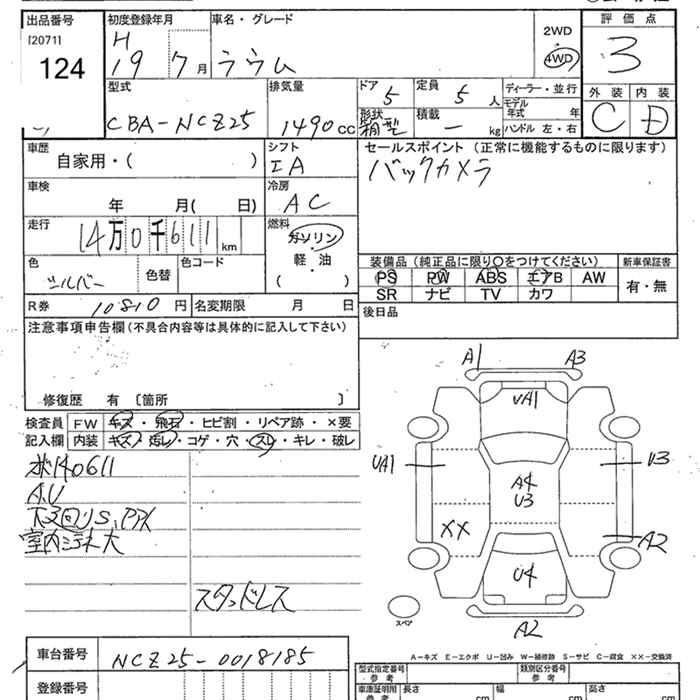 出品番号
[2071]
124
初度登録年月
H
19 7月
車名・グレード
ラウム
2WD
4WD
評価点
3
外装 内装
C D
型式
CBA-NCZ25
排気量
1490 cc
ドア
5
形状
箱型
定員
5人
積載
— kg
ディーラー・並行
モデル年式 年
ハンドル 左・右
車歴
自家用・( )
シフト
IA
セールスポイント(正常に機能するものに限ります)
バックカメラ
車検
年 月( 日)
冷房
AC
走行
14万0千611km
燃料
ガソリン
軽・油
( )
色
シルバー
色替
色コード
装備品(純正品に限り○をつけてください)
PS PW ABS エアB AW
SR ナビ TV カワ
新車保証書
有・無
R券
10810 円
名変期限 月 日
後日品
注意事項申告欄(不具合内容等は具体的に記入して下さい)
修復歴 有 〔箇所 〕
検査員記入欄
FW キズ・飛石・ヒビ割・リペア跡・×要
内装 キズ・汚レ・コゲ・穴・スレ・キレ・破レ
140611
A.U
下回りS、
室内 大
スタッドレス
A1 A3
UA1
UA1 U3
A4
U3
XX
A2
U4
スペア
A2
A-キズ E-エクボ U-凹み W-補修跡 S-サビ C-腐食 XX-交換済
車台番号
NCZ25-0018185
登録番号
型式指定番号
参考
類別区分番号
参考
車庫証明用
参考
長さ cm
幅 cm
高さ cm